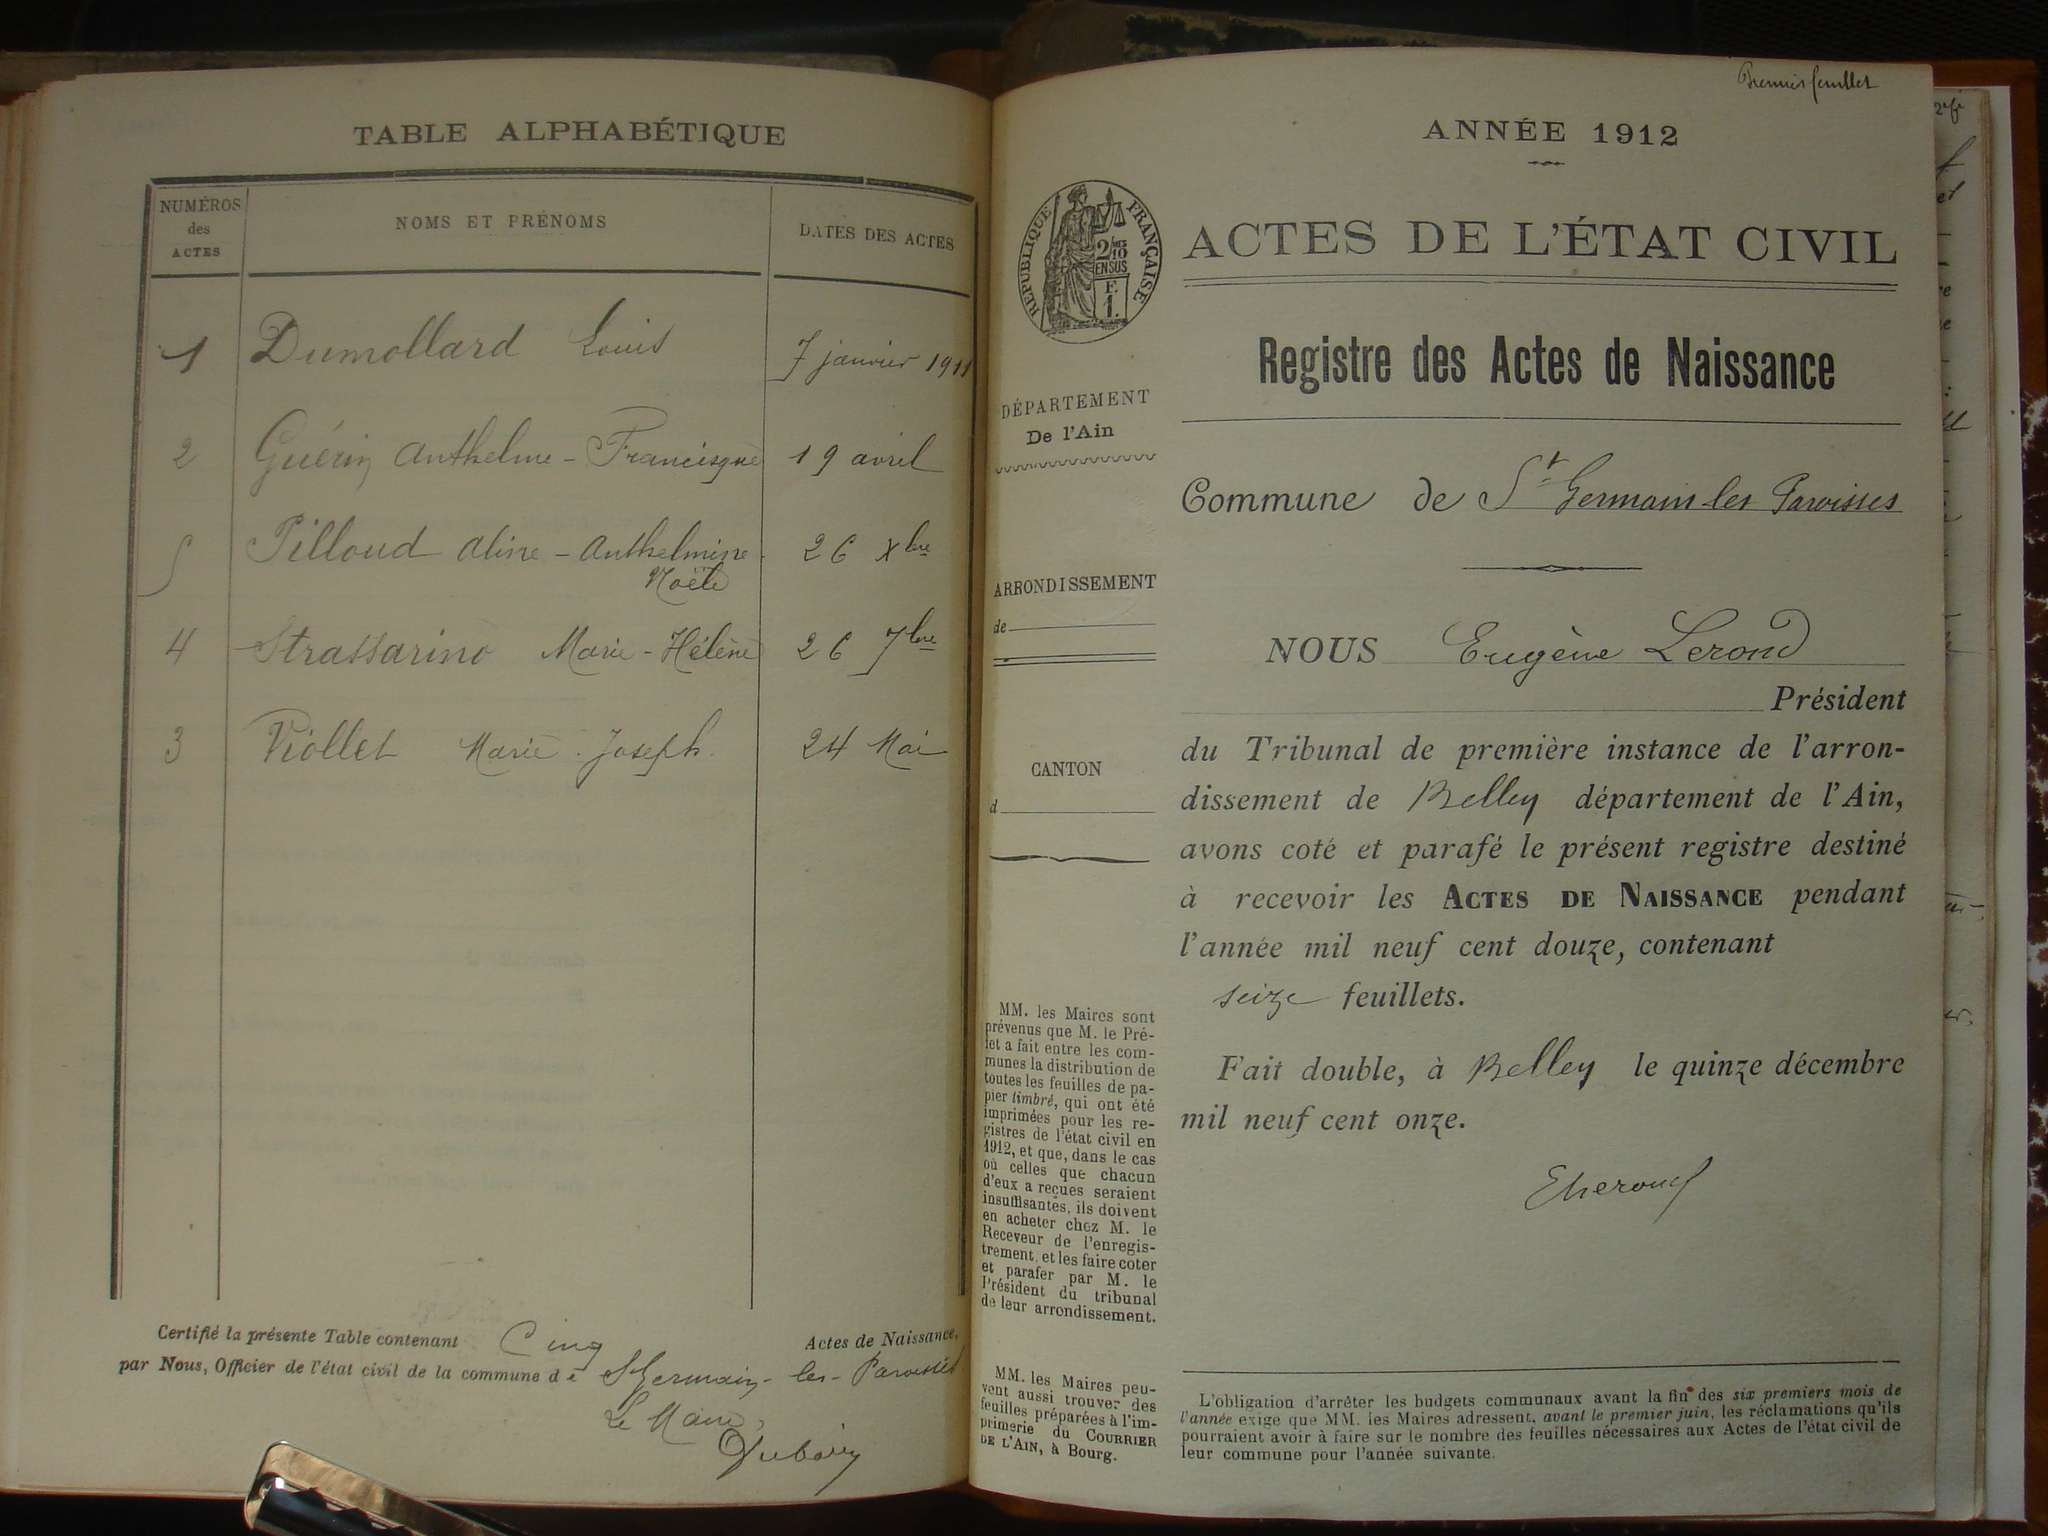 TABLE ALPHABÉTIQUE
NUMÉROS des ACTES
NOMS ET PRÉNOMS
DATES DES ACTES
1 Dumollard Louis 7 janvier 1911
2 Guérin Anthelme - Francisque 19 avril
5 Pilloud Aline - Anthelmine - 26 Xbre
Noële
4 Strassarino Marie - Hélène 26 7bre
3 Viollet Marie - Joseph. 24 Mai
Certifié la présente Table contenant Cinq Actes de Naissance,
par Nous, Officier de l'état civil de la commune de St Germain - les - Paroisses
Le Maire,
Premier feuillet
ANNÉE 1912
RÉPUBLIQUE FRANÇAISE
2/10
EN SUS
F.
1.
ACTES DE L'ÉTAT CIVIL
Registre des Actes de Naissance
DÉPARTEMENT
De l'Ain
Commune de St Germain les Paroisses
ARRONDISSEMENT
de
NOUS Eugène Lerond
Président
CANTON
d
du Tribunal de première instance de l'arron-
dissement de Belley département de l'Ain,
avons coté et parafé le présent registre destiné
à recevoir les ACTES DE NAISSANCE pendant
l'année mil neuf cent douze, contenant
seize feuillets.
Fait double, à Belley le quinze décembre
mil neuf cent onze.
ELerond
MM. les Maires sont
prévenus que M. le Pré-
fet a fait entre les com-
munes la distribution de
toutes les feuilles de pa-
pier timbré, qui ont été
imprimées pour les re-
gistres de l'état civil en
1912, et que, dans le cas
où celles que chacun
d'eux a reçues seraient
insuffisantes, ils doivent
en acheter chez M. le
Receveur de l'enregis-
trement, et les faire coter
et parafer par M. le
Président du tribunal
de leur arrondissement.
MM. les Maires peu-
vent aussi trouver des
feuilles préparées à l'im-
primerie du COURRIER
DE L'AIN, à Bourg.
L'obligation d'arrêter les budgets communaux avant la fin des six premiers mois de
l'année exige que MM. les Maires adressent, avant le premier juin, les réclamations qu'ils
pourraient avoir à faire sur le nombre des feuilles nécessaires aux Actes de l'état civil de
leur commune pour l'année suivante.